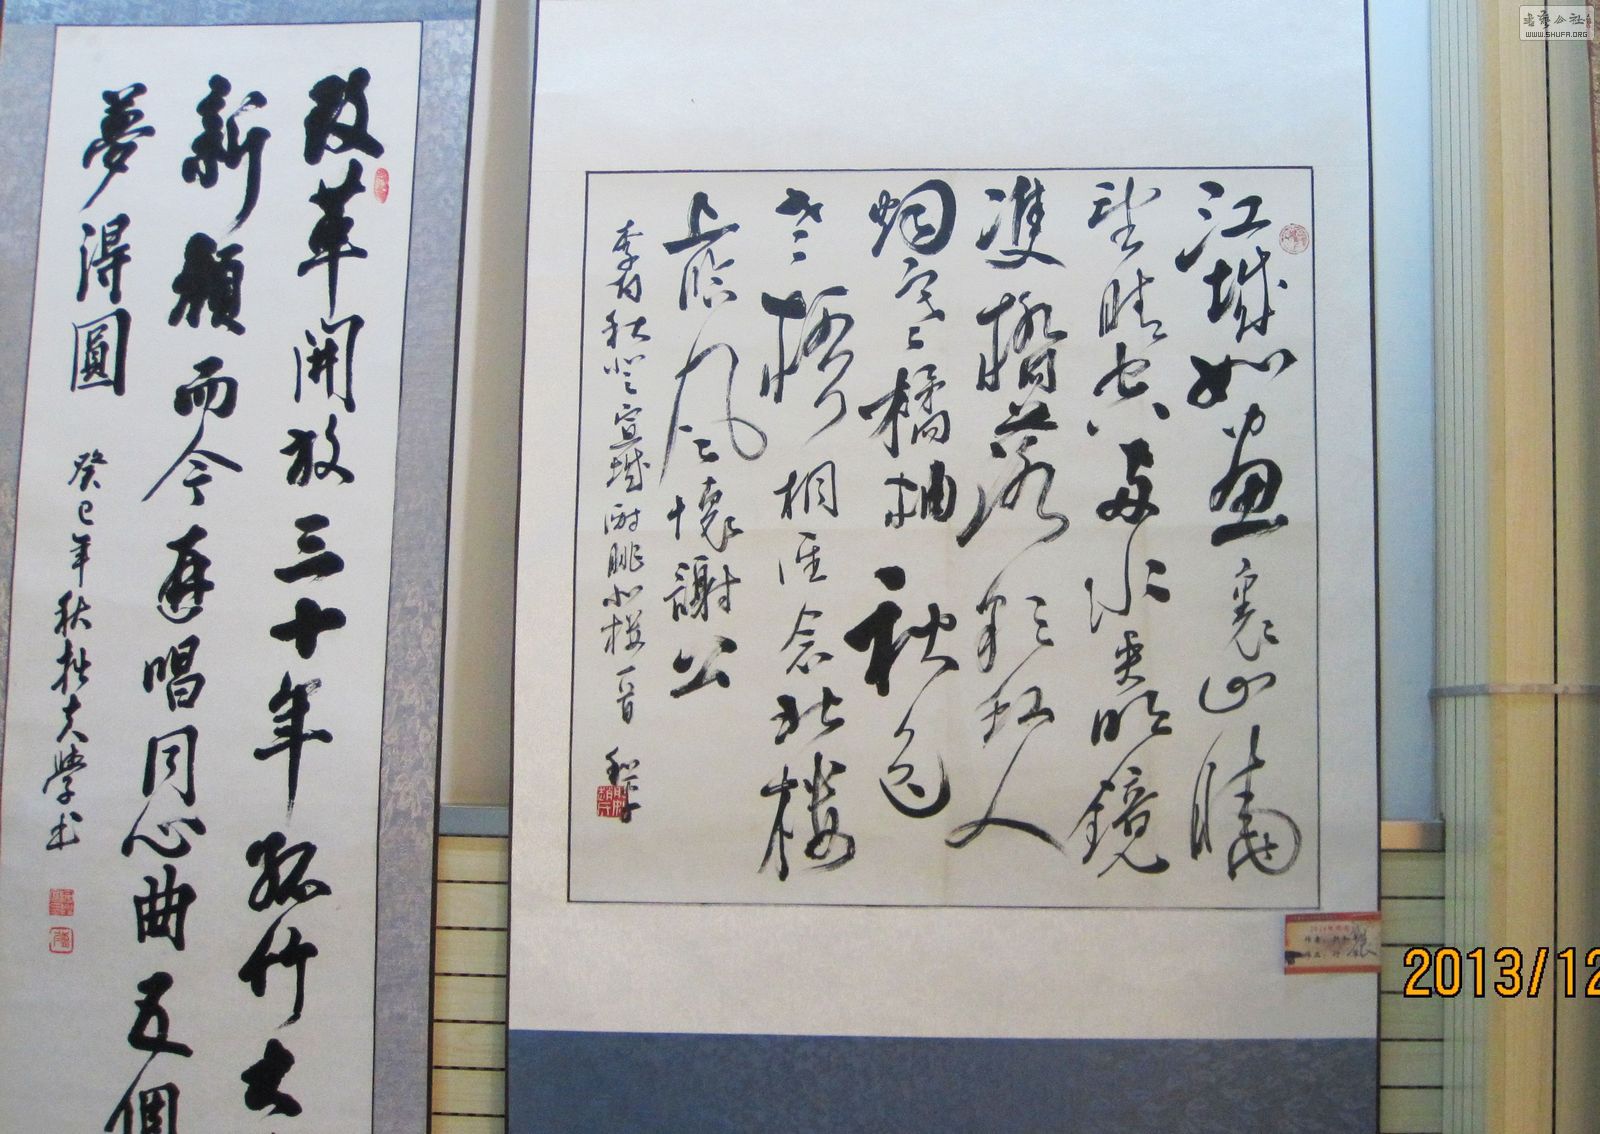 江城如畫裏山曉
望晴空兩水夾明鏡
雙橋落彩虹人
烟寒橘柚秋色
老梧桐誰念北樓
上臨風懷謝公
李白秋登宣城謝朓北樓一首
改革開放三十年孤竹大
新顏而今唱同心曲五個
夢得圓
癸巳年秋拙夫學書
WWW.SHUFA.ORG
2013/12